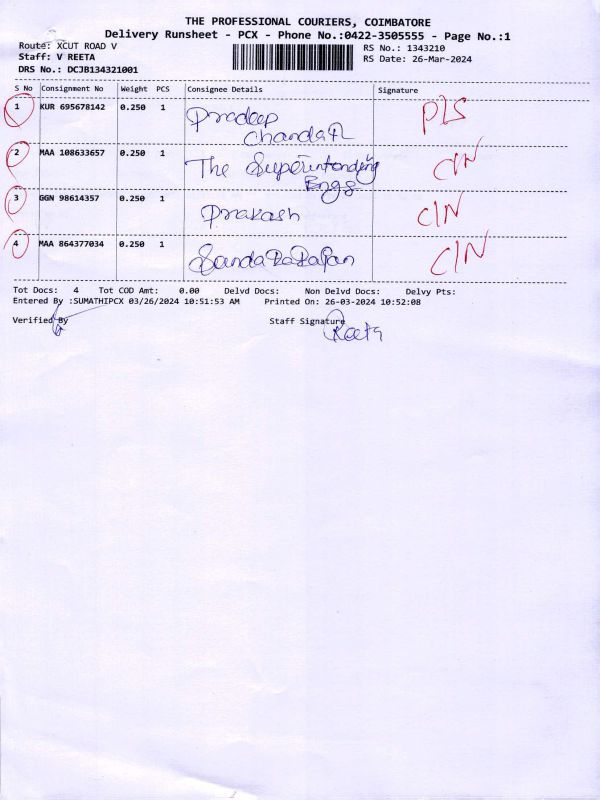 THE PROFESSIONAL COURIERS, COIMBATORE
Delivery Runsheet - PCX - Phone No.:0422-3505555 - Page No.:1
Route: XCUT ROAD V RS No.: 1343210
Staff: V REETA RS Date: 26-Mar-2024
DRS No.: DCJB134321001
S No Consignment No Weight PCS Consignee Details Signature
1 KUR 695678142 0.250 1 Pradeep PLS
2 MAA 108633657 0.250 1 The Superintending C/N
Engg
3 GGN 98614357 0.250 1 Prakash C/N
4 MAA 864377034 0.250 1 C/N
Tot Docs: 4 Tot COD Amt: 0.00 Delvd Docs: Non Delvd Docs: Delvy Pts:
Entered By :SUMATHIPCX 03/26/2024 10:51:53 AM Printed On: 26-03-2024 10:52:08
Verified By Staff Signature
Reeta